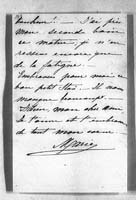 bonheur! — J'ai pris
mon second bain
ce matin, je n'en
ressens encore que
de la fatigue.
Embrasse pour moi ce
bon petit  Il nous
manque beaucoup
mon cher ami
je t'aime et t'embrasse
de tout mon cœur